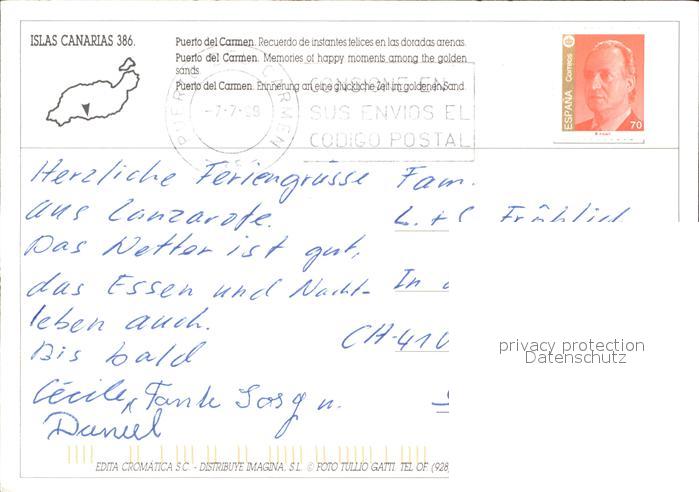 ISLAS CANARIAS 386.
Puerto del Carmen. Recuerdo de instantes felices en las doradas arenas.
Puerto del Carmen. Memories of happy moments among the golden
sands.
Puerto del Carmen. Erinnerung an eine glückliche Zeit im goldenen Sand.
CONSIGNE EN
SUS ENVIOS EL
CODIGO POSTAL
PUERTO CARMEN
-7-7-
ESPAÑA
Correos
70
Herzliche Feriengrüsse
aus Lanzarote.
Das Wetter ist gut,
das Essen und Nacht-
leben auch.
Bis bald
Cécile, Tante
Daniel
Fam.
L. + Fröhlich
In
CH-410
privacy protection
Datenschutz
EDITA CROMÁTICA S.C. - DISTRIBUYE IMAGINA, S.L. © FOTO TULLIO GATTI. TEL. OF. (928)